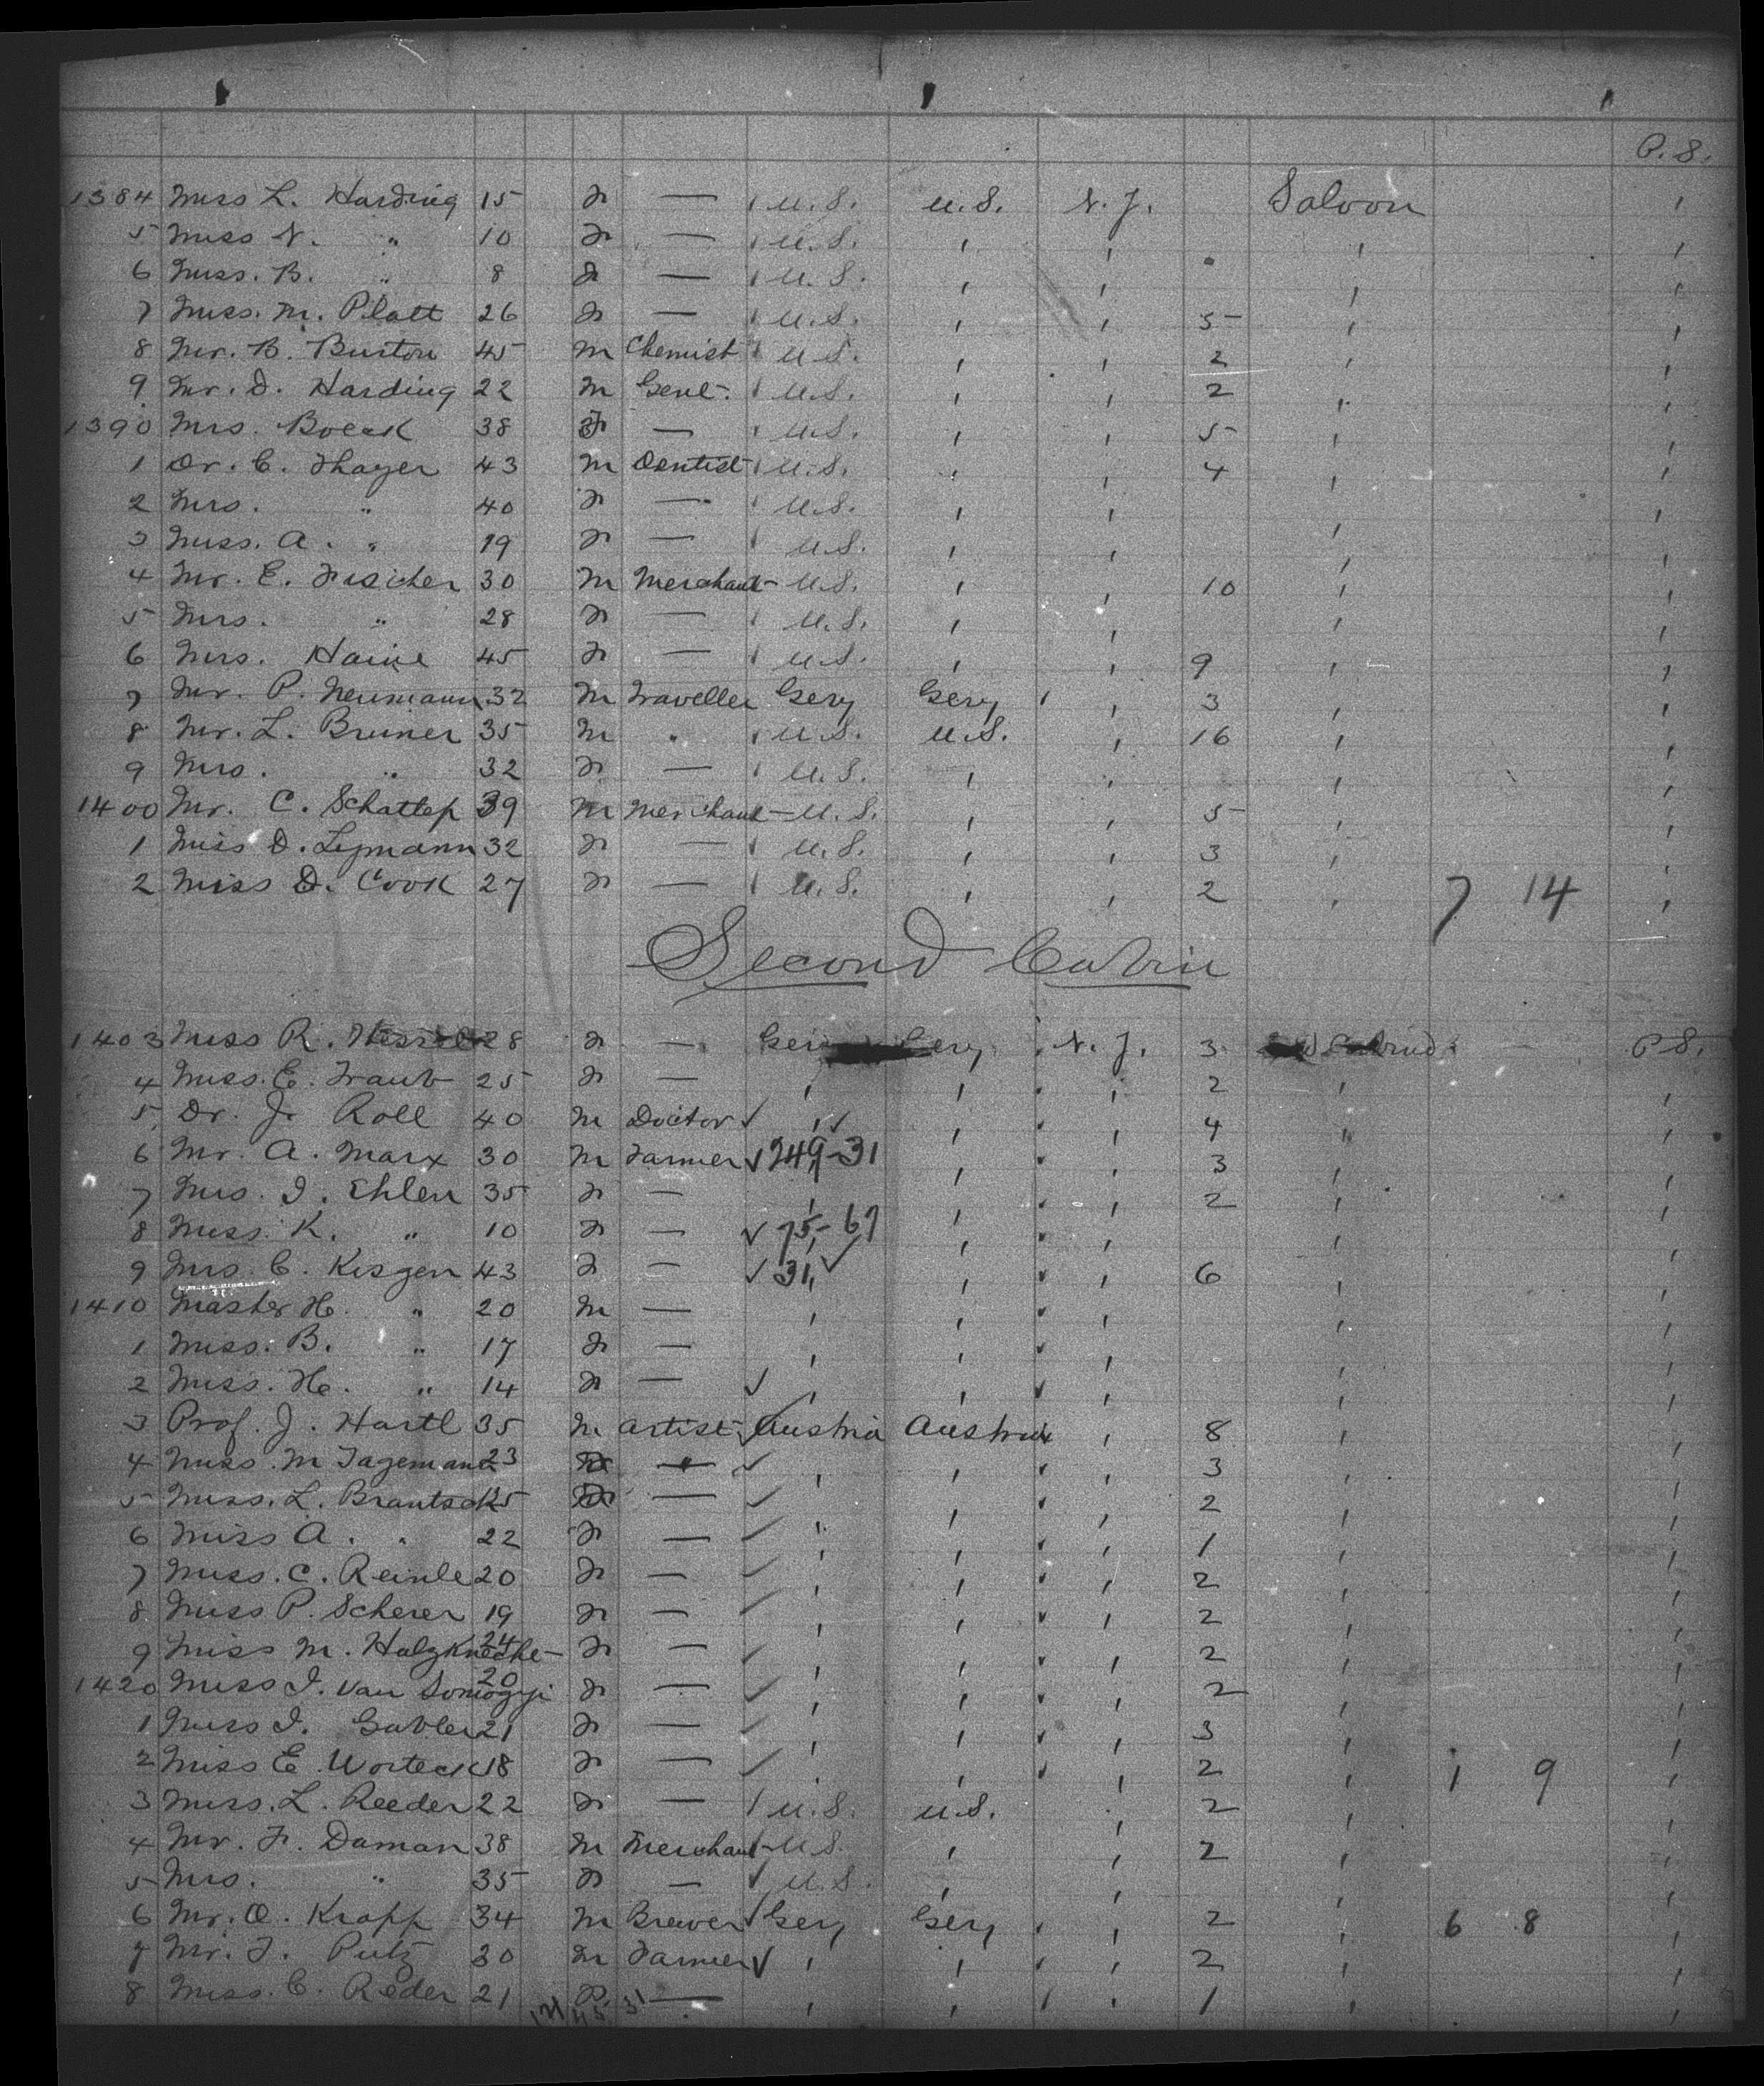 P.S.
1384 Miss L. Harding 15 F — U.S. U.S. N.J. Saloon "
5 Miss N. " 10 F — U.S. " " " "
6 Miss. B. " 8 F — U.S. " " " "
7 Miss. M. Platt 26 F — U.S. " " 5 " "
8 Mr. B. Burton 45 M Chemist U.S. " " 2 " "
9 Mr. D. Harding 22 M Gent. U.S. " " 2 " "
1390 Mrs. Boeck 38 F — U.S. " " 5 " "
1 Dr. C. Thayer 43 M Dentist U.S. " " 4 " "
2 Mrs. " 40 F — U.S. " " " "
3 Miss. A. " 19 F — U.S. " " " "
4 Mr. E. Fischer 30 M Merchant U.S. " " 10 " "
5 Mrs. " 28 F — U.S. " " " "
6 Mrs. Haine 45 F — U.S. " " 9 " "
7 Mr. P. Neumann 32 M Traveller Gery Gery " 3 " "
8 Mr. L. Bruner 35 M " U.S. U.S. " 16 " "
9 Mrs. " 32 F — U.S. " " " "
1400 Mr. C. 39 M Merchant U.S. " " 5 " "
1 Miss D. Lymann 32 F — U.S. " " 3 " "
2 Miss D. Cook 27 F — U.S. " " 2 " 7 14 "
Second Cabin
1403 Miss R. 28 F — Gery Gery N.J. 3 P.S.
4 Miss. E. Traub 25 F — " " " 2 " "
5 Dr. J. Roll 40 M Doctor ✓ " ✓ " " 4 " "
6 Mr. A. Marx 30 M Farmer ✓ 249-31 " " 3 " "
7 Mrs. I. Ehlen 35 F — " " " 2 " "
8 Miss. K. " 10 F — ✓ 75-67 " " " "
9 Mrs. C. Kisgen 43 F — ✓ 31 ✓ " " 6 " "
1410 Master H. " 20 M — " " " " "
1 Miss. B. " 17 F — " " " " "
2 Miss. H. " 14 F — ✓ " " " " "
3 Prof. J. Hartl 35 M Artist Austria Austria " 8 " "
4 Miss. M Tagemann 23 F — ✓ " " " 3 " "
5 Miss. L. Brantsek F — ✓ " " " 2 " "
6 Miss A. " 22 F — ✓ " " " 1 " "
7 Miss. C. Reinle 20 F — ✓ " " " 2 " "
8 Miss P. Scherer 19 F — ✓ " " " 2 " "
9 Miss M. Holzknecht 24 F — ✓ " " " 2 " "
1420 Miss I. Van Somogyi 20 F — ✓ " " " 2 " "
1 Miss I. Gabler 21 F — ✓ " " " 3 " "
2 Miss E. Worteck 18 F — ✓ " " " 2 " 1 9 "
3 Miss. L. Reeder 22 F — U.S. U.S. " 2 " "
4 Mr. F. Daman 38 M Merchant U.S. " " 2 " "
5 Mrs. " 35 F — U.S. " " " "
6 Mr. O. Kropp 34 M Brewer Gery Gery " 2 " 6 8 "
7 Mr. F. Putz 30 M Farmer ✓ " " " 2 " "
8 Miss. C. Reder 21 F — " " " 1 " "